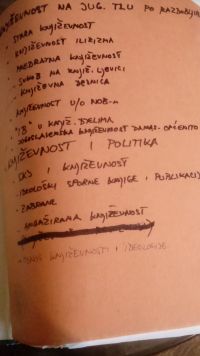 KNJIŽEVNOST NA JUG. TLU PO RAZDOBLJIMA
- STARA KNJIŽEVNOST
- KNJIŽEVNOST ILIRIZMA
- MEĐURATNA KNJIŽEVNOST
- SUKOB NA KNJIŽ. LJEVICI
- KNJIŽEVNA DESNICA
- KNJIŽEVNOST U/O NOB-A
- "IB" U KNJIŽ. DJELIMA
- JUGOSLAVENSKA KNJIŽEVNOST DANAS - OPĆENITO
KNJIŽEVNOST I POLITIKA
- I KNJIŽEVNOST
- IDEOLOŠKI SPORNE KNJIGE I PUBLIKACIJE
- ZABRANE
- ANGAŽIRANA KNJIŽEVNOST
- ODNOS KNJIŽEVNOSTI I IDEOLOGIJE